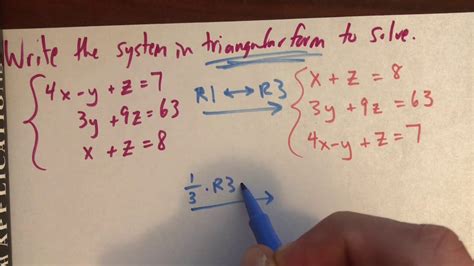 Write the system in triangular form to solve.
4x-y+z=7
3y+9z=63
x+z=8
R1 ↔ R3
x+z=8
3y+9z=63
4x-y+z=7
1/3 · R3
APPLICATION